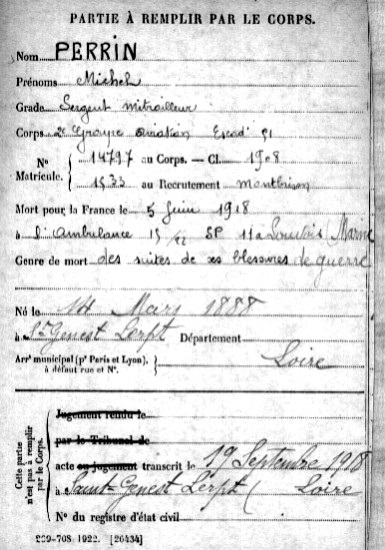 PARTIE À REMPLIR PAR LE CORPS.
Nom PERRIN
Prénoms Michel
Grade Sergent mitrailleur
Corps 2e Groupe aviation Escad. 91
No Matricule. 14797 au Corps. — Cl. 1908
1533 au Recrutement Montbrison
Mort pour la France le 5 Juin 1918
à l'ambulance 15/22 SP 11 à Louvois (Marne
Genre de mort des suites de ses blessures de guerre
Né le 14 Mars 1888
à St Genest Lerpt Département
Arrt municipal (pr Paris et Lyon), à défaut rue et No. Loire
Cette partie n'est pas à remplir par le Corps.
Jugement rendu le
par le Tribunal de
acte ou jugement transcrit le 19 Septembre 1918
à Saint-Genest Lerpt (Loire
No du registre d'état civil
[26434]